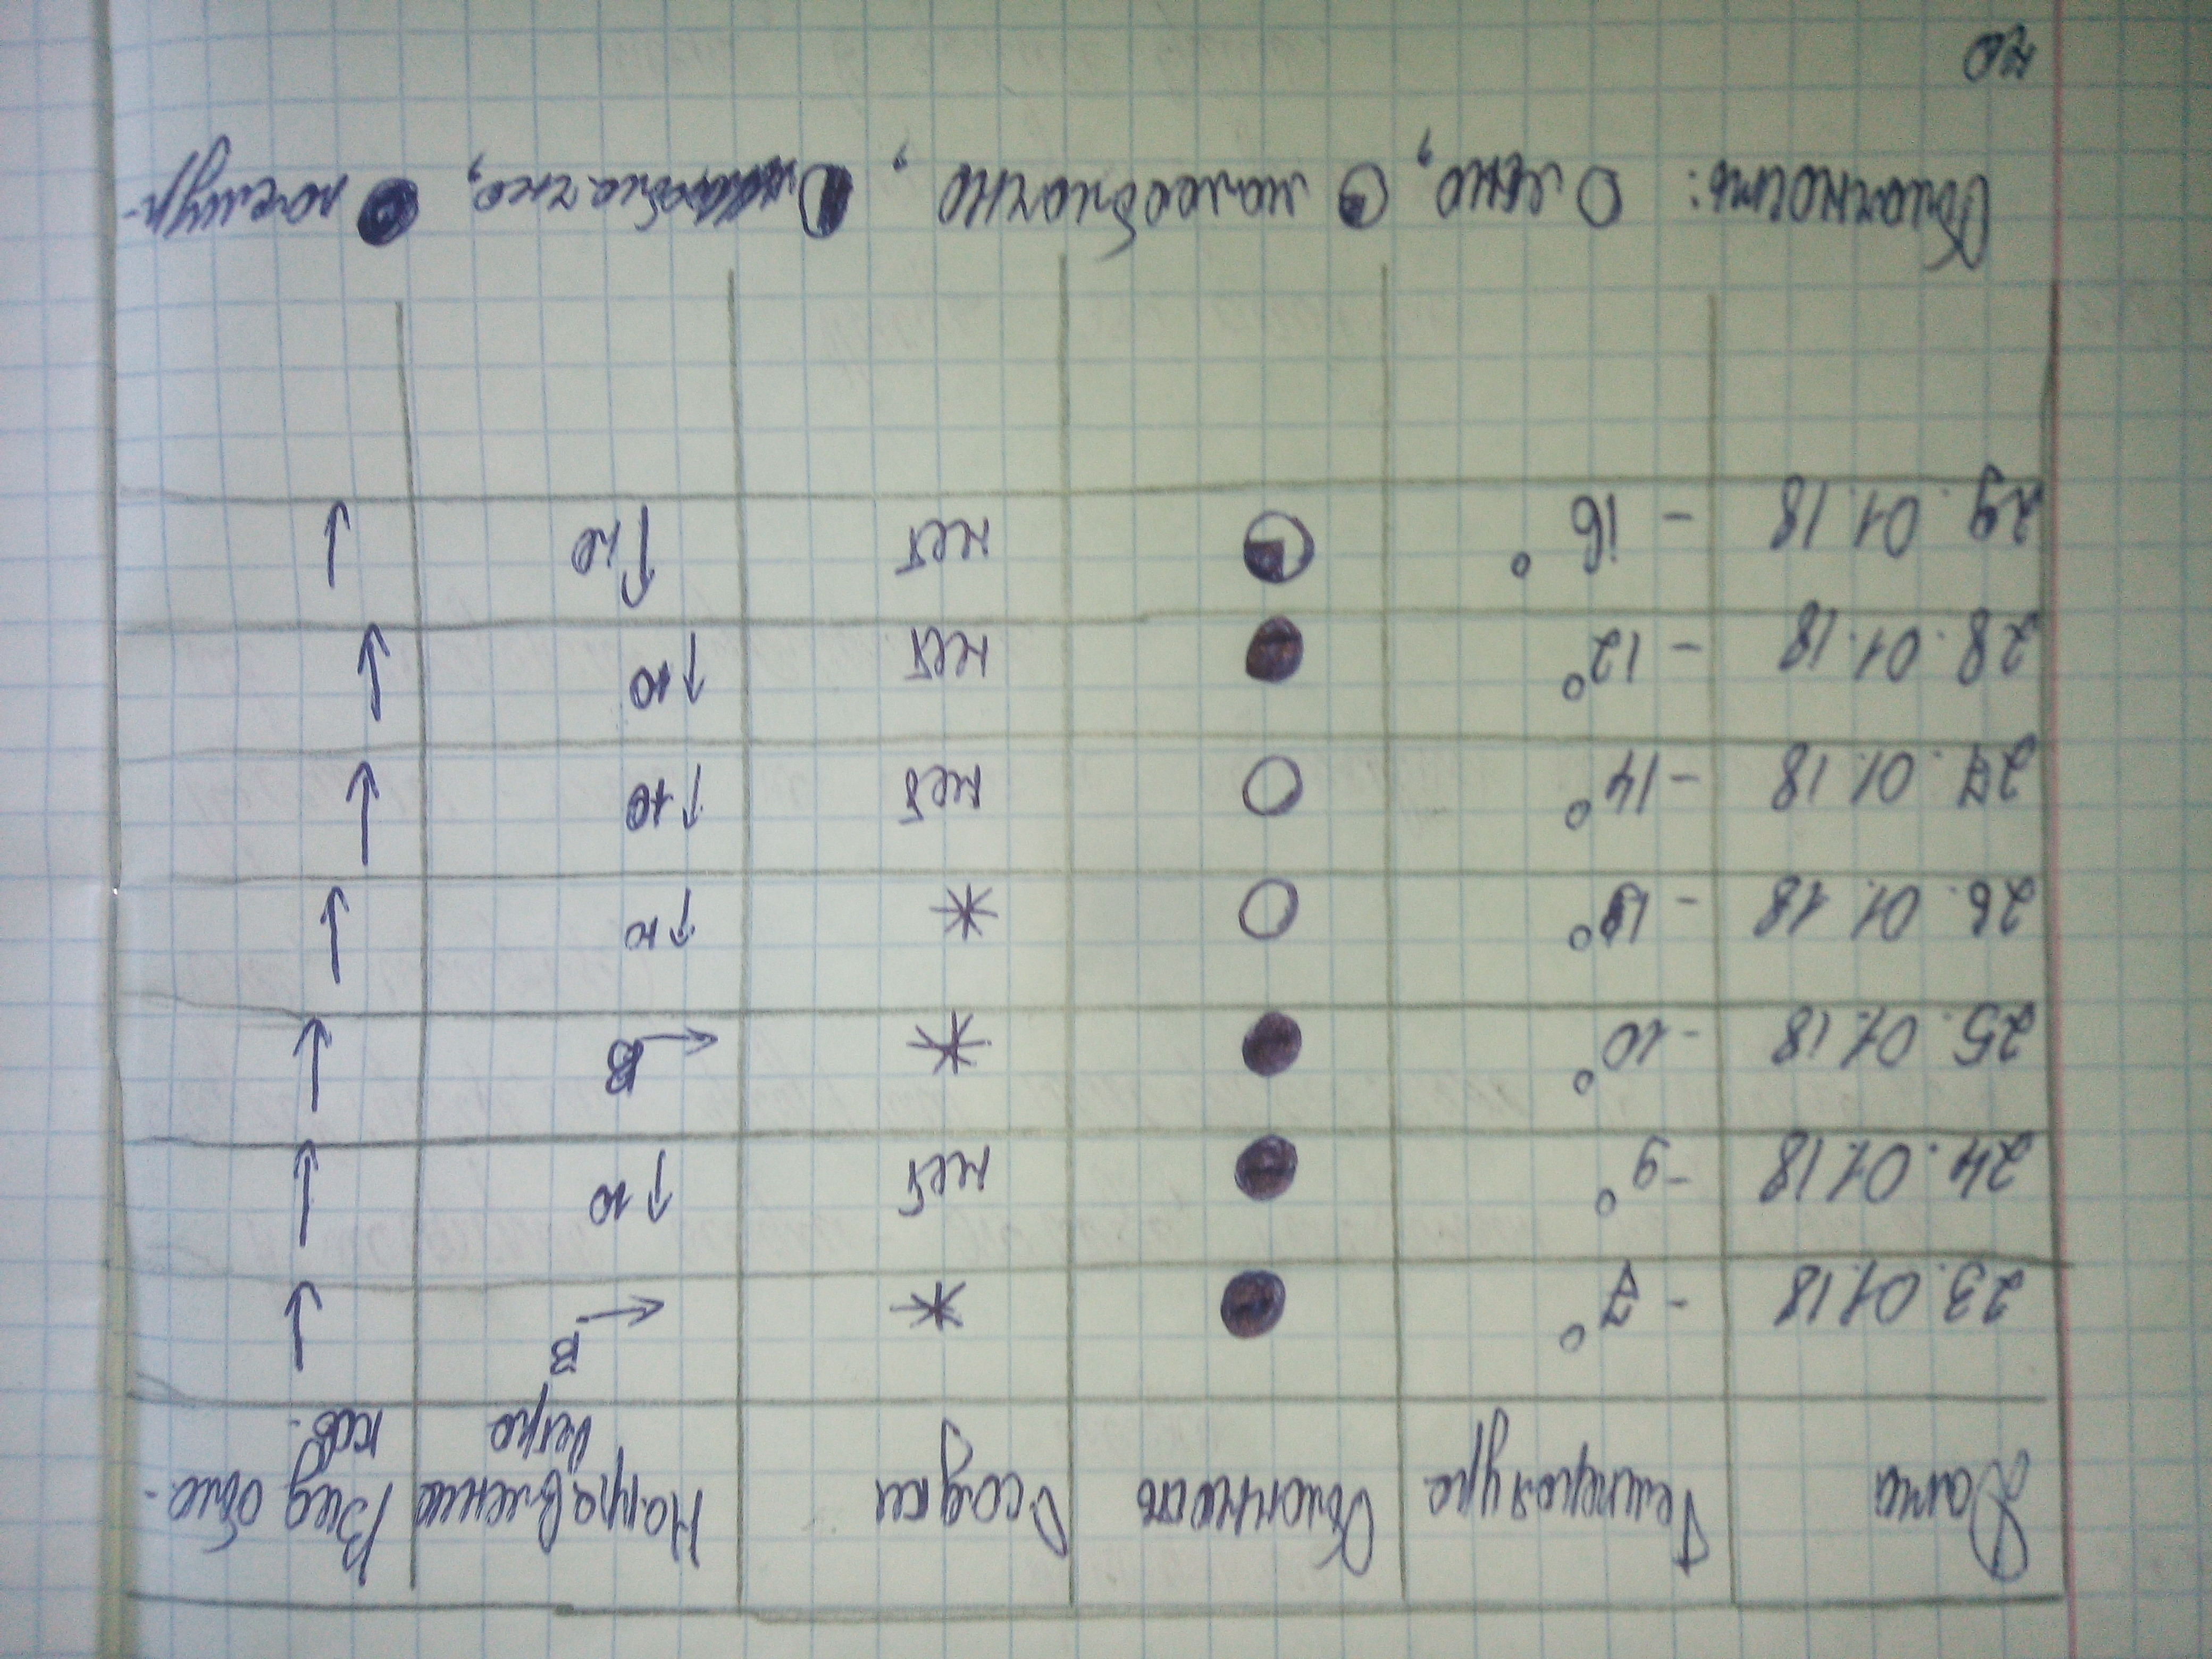 Дата Температура Облачность Осадки Направление ветра Вид обла-
ков.
23.01.18 -7° * В
24.01.18 -9° нет ↑ Ю
25.01.18 -10° * В
26.01.18 * ↑ Ю
27.01.18 -14° нет ↑ Ю
28.01.18 -12° нет ↑ Ю
29.01.18 -16° нет ↑ Ю
Облачность: ясно, малооблачно, пасмур-
но